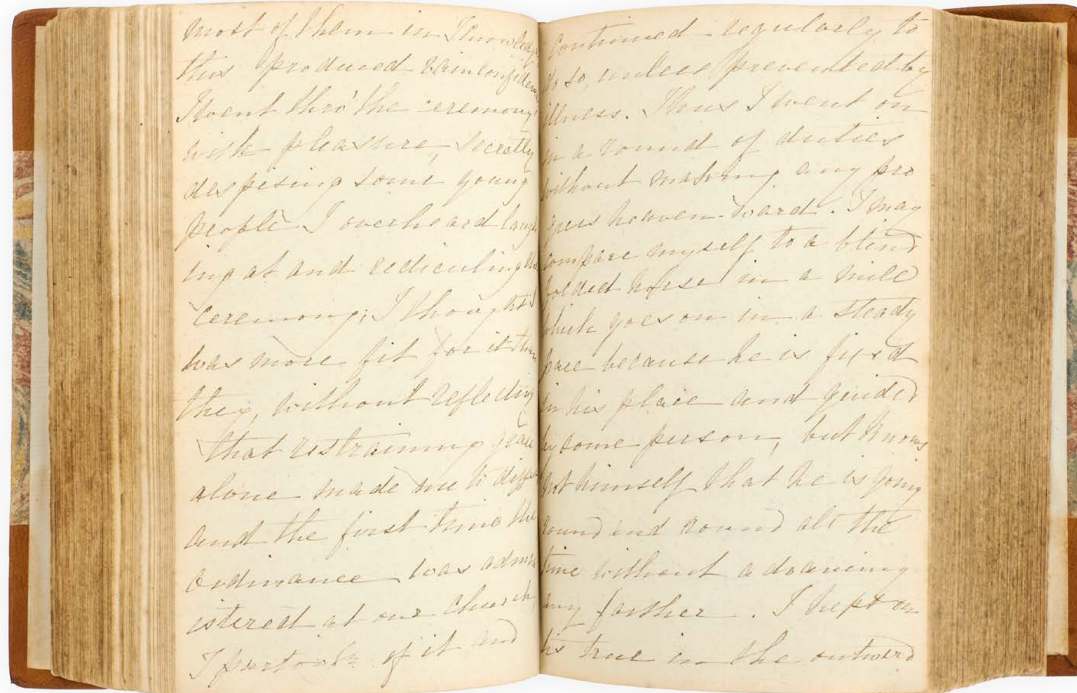 most of them in Knowledge
this produced vain confidence
I went thro' the ceremony
with pleasure, secretly
despising some young
people I overheard laugh
ing at and rediculing the
ceremony; I thought I
was more fit for it than
they, without reflecting
that restraining grace
alone made me to differ
and the first time the
ordinance was admin
istered at our church,
I partook of it and
continued regularly to
do so, unless prevented by
illness. Thus I went on
in a round of duties
without making any pro
gress heaven-ward. I may
compare myself to a blind
folded horse in a mill
which goes on in a steady
pace because he is fixed
in his place and guided
by some person, but knows
not himself that he is going
round and round all the
time without advancing
any farther. I kept on
his true in the outward